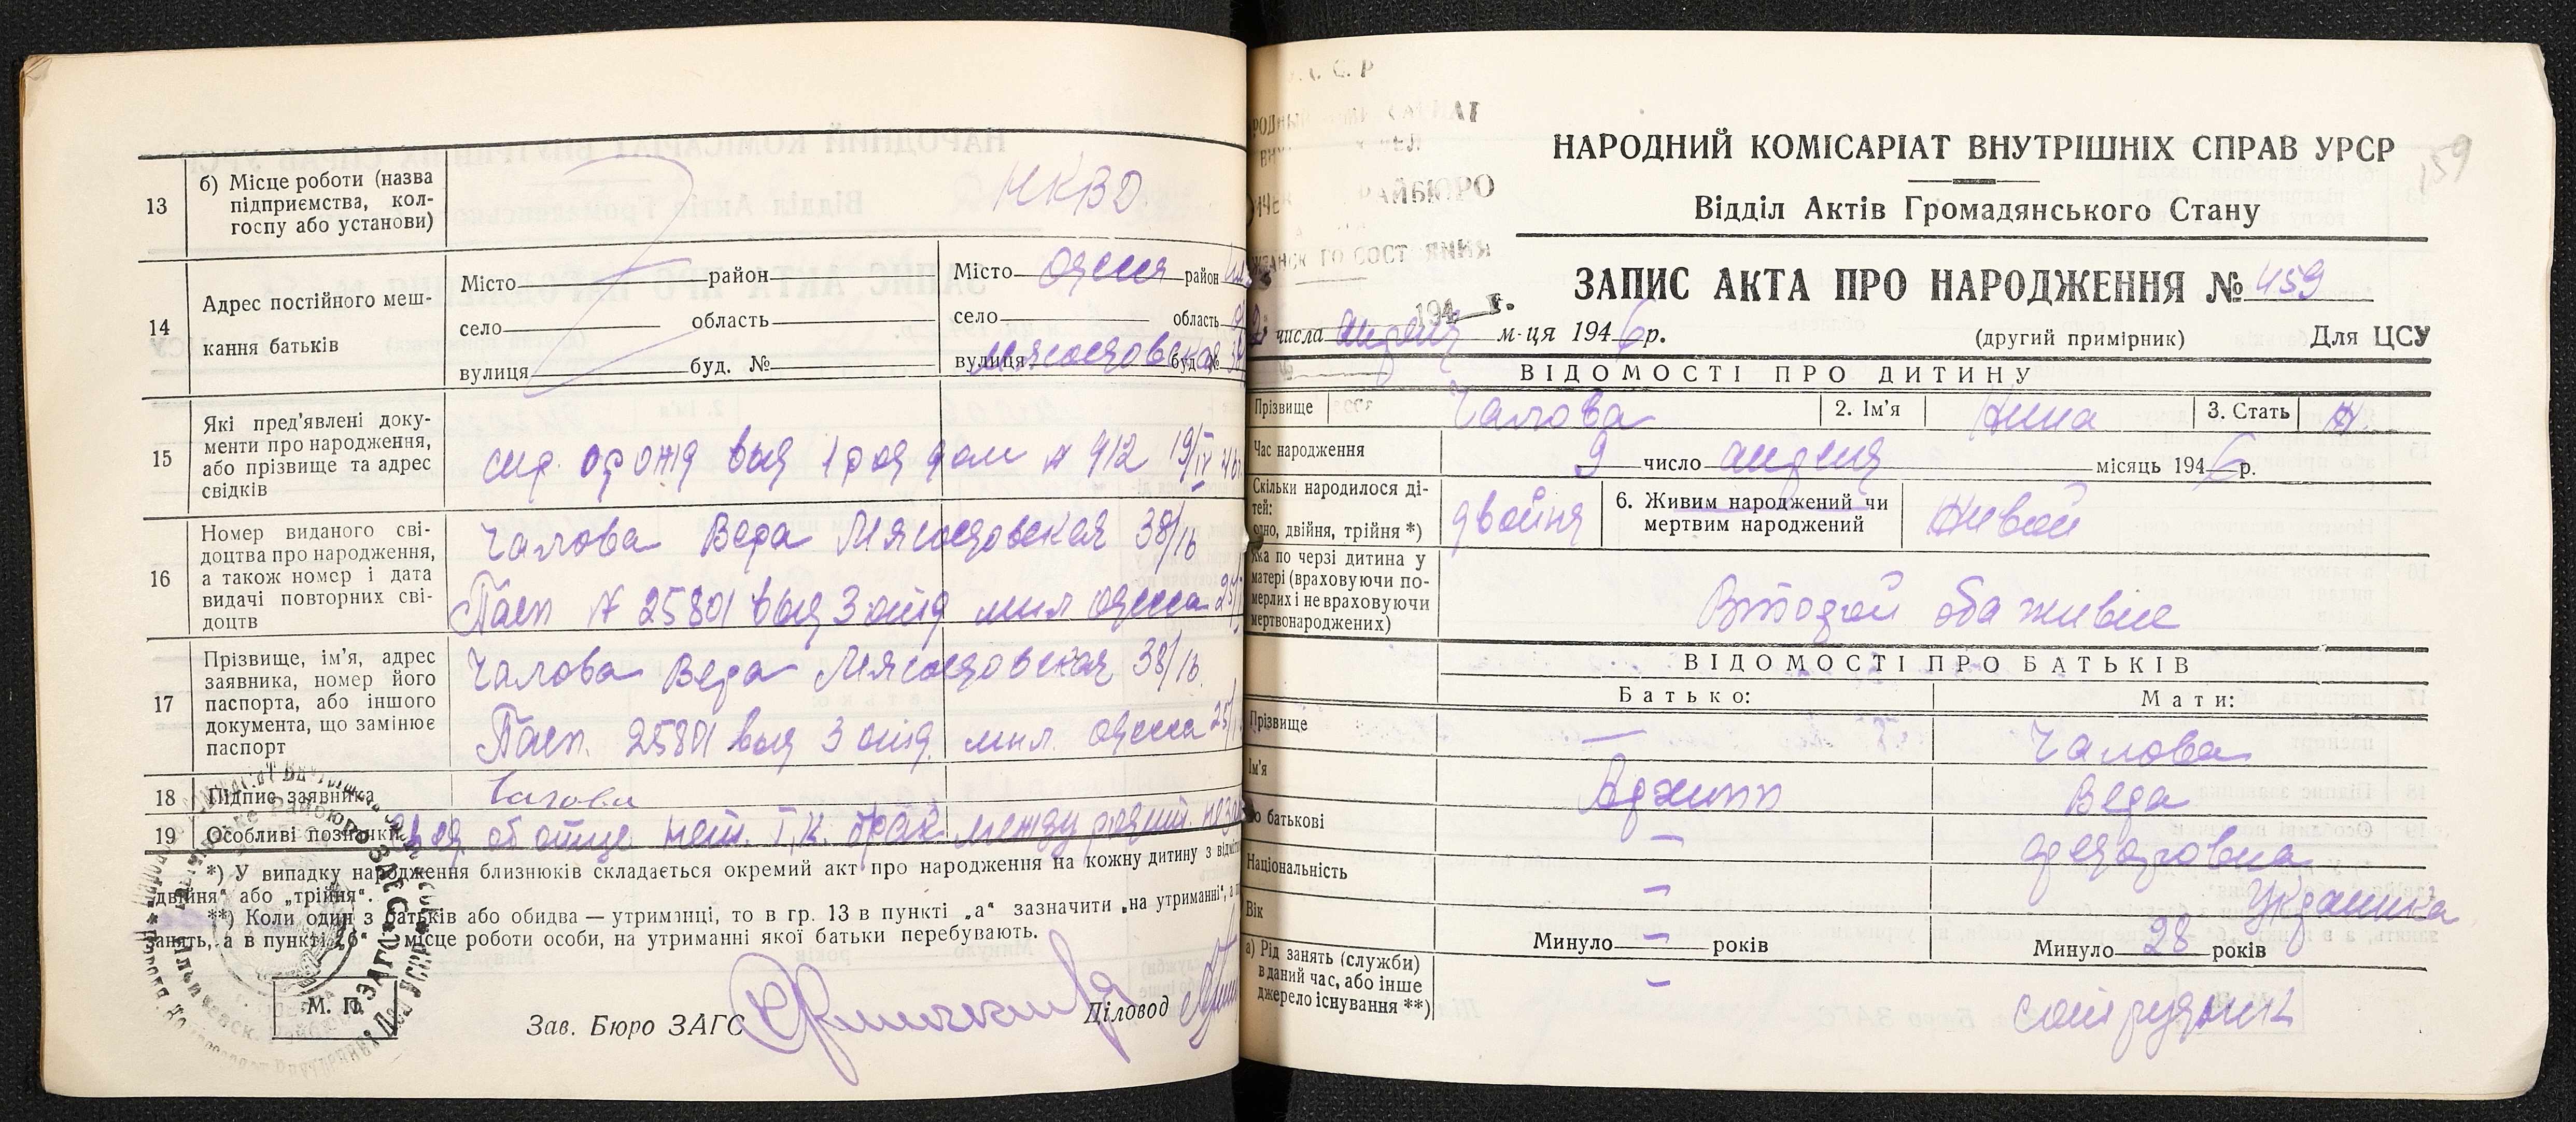 13 б) Місце роботи (назва підприємства, колгоспу або установи) НКВД.
14 Адрес постійного мешкання батьків
Місто район Місто Одесса район
село область село область
вулиця буд. № вулиця Мясоедовская буд. №
15 Які пред'явлені документи про народження, або прізвище та адрес свідків
выд 1 род дом № 912 19/IV
16 Номер виданого свідоцтва про народження, а також номер і дата видачі повторних свідоцтв
Чалова Вера Мясоедовская 38/16
Пасп № 25801 выд 3 отд мил Одесса
17 Прізвище, ім'я, адрес заявника, номер його паспорта, або іншого документа, що замінює паспорт
Чалова Вера Мясоедовская 38/16.
Пасп. 25801 выд 3 отд. мил. Одесса
18 Підпис заявника Чалова
19 Особливі позначки об отце нет. т.к. брак между родит.
*) У випадку народження близнюків складається окремий акт про народження на кожну дитину з
„двійня" або „трійня".
**) Коли один з батьків або обидва — утриманці, то в гр. 13 в пункті „а" зазначити „на утриманні",
занять, а в пункті „б" місце роботи особи, на утриманні якої батьки перебувають.
М. П.
Зав. Бюро ЗАГС Діловод
159
НАРОДНИЙ КОМІСАРІАТ ВНУТРІШНІХ СПРАВ УРСР
Відділ Актів Громадянського Стану
РАЙБЮРО
ЗАПИС АКТА ПРО НАРОДЖЕННЯ № 459
194 г.
числа апреля м-ця 1946 р. (другий примірник) Для ЦСУ
ВІДОМОСТІ ПРО ДИТИНУ
Прізвище Чалова 2. Ім'я Нина 3. Стать Ж.
Час народження 9 число апреля місяць 1946 р.
Скільки народилося дітей: одно, двійня, трійня *) двойня 6. Живим народжений чи мертвим народжений живой
Яка по черзі дитина у матері (враховуючи померлих і не враховуючи мертвонароджених) Второй оба живые
ВІДОМОСТІ ПРО БАТЬКІВ
Батько: Мати:
Прізвище — Чалова
Ім'я Вера
По батькові — Федоровна
Національність — Украинка
Вік Минуло — років Минуло 28 років
а) Рід занять (служби) в даний час, або інше джерело існування **) — сотрудник